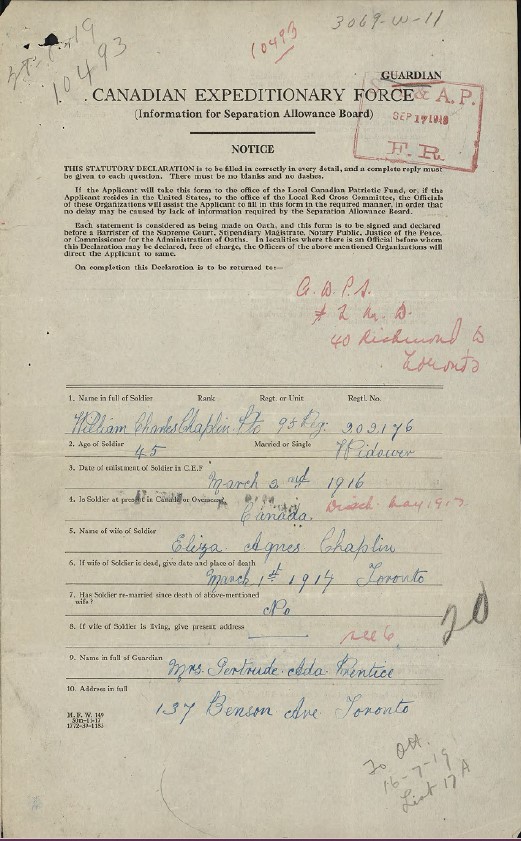 3069-W-11
10493
10493
GUARDIAN
CANADIAN EXPEDITIONARY FORCE
& A.P.
SEP 17 1918
F. R.
(Information for Separation Allowance Board)
NOTICE
THIS STATUTORY DECLARATION is to be filled in correctly in every detail, and a complete reply must
be given to each question. There must be no blanks and no dashes.
If the Applicant will take this form to the office of the Local Canadian Patriotic Fund, or, if the
Applicant resides in the United States, to the office of the Local Red Cross Committee, the Officials
of these Organizations will assist the Applicant to fill in this form in the required manner, in order that
no delay may be caused by lack of information required by the Separation Allowance Board.
Each statement is considered as being made on Oath, and this form is to be signed and declared
before a Barrister of the Supreme Court, Stipendiary Magistrate, Notary Public, Justice of the Peace,
or Commissioner for the Administration of Oaths. In localities where there is an Official before whom
this Declaration may be declared, free of charge, the Officers of the above mentioned Organizations will
direct the Applicant to same.
On completion this Declaration is to be returned to:—
40 Richmond
Toronto
1. Name in full of Soldier Rank Regt. or Unit Regtl. No.
William Charles Chaplin Pte 95 202176
2. Age of Soldier 45 Married or Single Widower
3. Date of enlistment of Soldier in C.E.F March 2nd 1916
4. Is Soldier at present in Canada or Overseas? Canada. Disch. May 1917
5. Name of wife of Soldier Eliza Agnes Chaplin
6. If wife of Soldier is dead, give date and place of death March 1st 1914 Toronto
7. Has Soldier re-married since death of above-mentioned
wife? No
8. If wife of Soldier is living, give present address see 6
20
9. Name in full of Guardian Mrs. Gertrude Ada Prentice
10. Address in full 137 Benson Ave Toronto
M. F. W. 149
To Ott.
16-7-19
List 17A